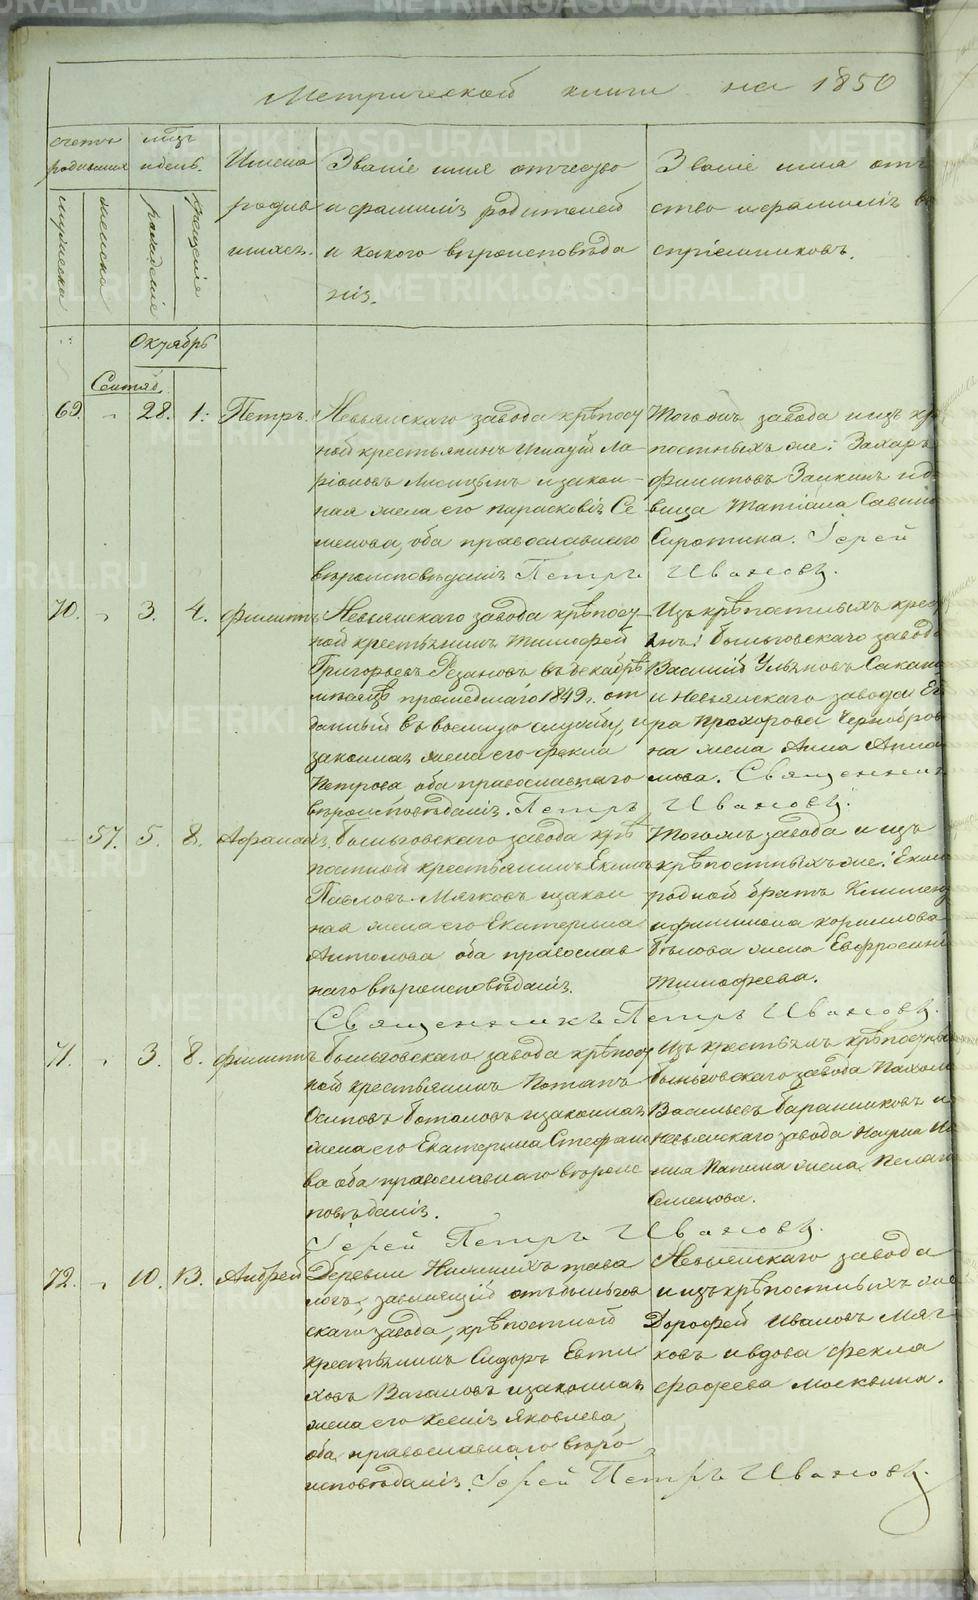 Метрической книги на 1850
счетъ родившихся
мѣсяцъ и день.
Имена родив шихся.
Званіе имя отчество
и фамилія родителей
и какого вѣроисповѣда
нія.
Званіе имя отче
ство и фамилія во
спріемниковъ.
мужеска
женска
рожденіе
крещеніе
Октябрь
Сентяб.
69. " 28. 1. Петръ.
Невьянскаго завода крѣпост
ной крестьянинъ Игнатій Ла
ріоновъ Лисицынъ и закон
ная жена его Параскевія Се
менова, оба православнаго
вѣроисповѣданія
Того жъ завода и изъ кр
постныхъ же: Захаръ
Филиповъ Заикинъ и дѣ
вица Татіана Савина
Сиротина. Іерей
Петръ Ивановъ.
70. " 3. 4. Филиппъ
Невьянскаго завода крѣпост
ной крестьянинъ Тимофей
Григорьевъ Рѣзановъ въ декабрѣ
мѣсяцѣ прошедшаго 1849г. от
данный въ военную службу, и
законная жена его Фекла
Петрова оба православнаго
вѣроисповѣданія.
Изъ крѣпостныхъ крес
янъ: Быньговскаго завода
Василій Ульяновъ Сакан
и Невьянскаго завода Ег
ра Прохорова Чернобров
на жена Анна Аппа
нова. Священникъ
Петръ Ивановъ.
57. 5. 8. Афанасія
Быньговскаго завода крѣ
постной крестьянинъ Екимъ
Павловъ Мягковъ и закон
ная жена его Екатерина
Антонова оба православ
наго вѣроисповѣданія.
Тогожъ завода и изъ
крѣпостныхъ же: Екима
родной братъ Климент
и Филимона Корнилова
Бѣлова жена Евфросинія
Тимофеева.
Священникъ Петръ Ивановъ.
71. " 3. 8. Филиппъ
Быньговскаго завода крѣпост
ной крестьянинъ Потапъ
Осиповъ Боталовъ и законная
жена его Екатерина Стефано
ва оба православнаго вѣроис
повѣданія.
Изъ крестьянъ крѣпостных
Быньговскаго завода Пахом
Васильевъ Баранниковъ и
Невьянскаго завода Наума Ив
жена Пелаг
Семенова.
Іерей Петръ Ивановъ.
72. " 10. 13. Андрей
Деревни Нижнихъ Тава
логъ, зависящей отъ Быньгов
скаго завода, крѣпостной
крестьянинъ Сидоръ Евти
ховъ Вагановъ и законная
жена его Ксенія Яковлева,
оба православнаго вѣро
исповѣданія.
Невьянскаго завода
и изъ крѣпостныхъ же
Дорофей Ивановъ Мяг
ковъ и вдова Фекла
Фадеева Москвина.
Іерей Петръ Ивановъ.
METRIKI.GASO-URAL.RU